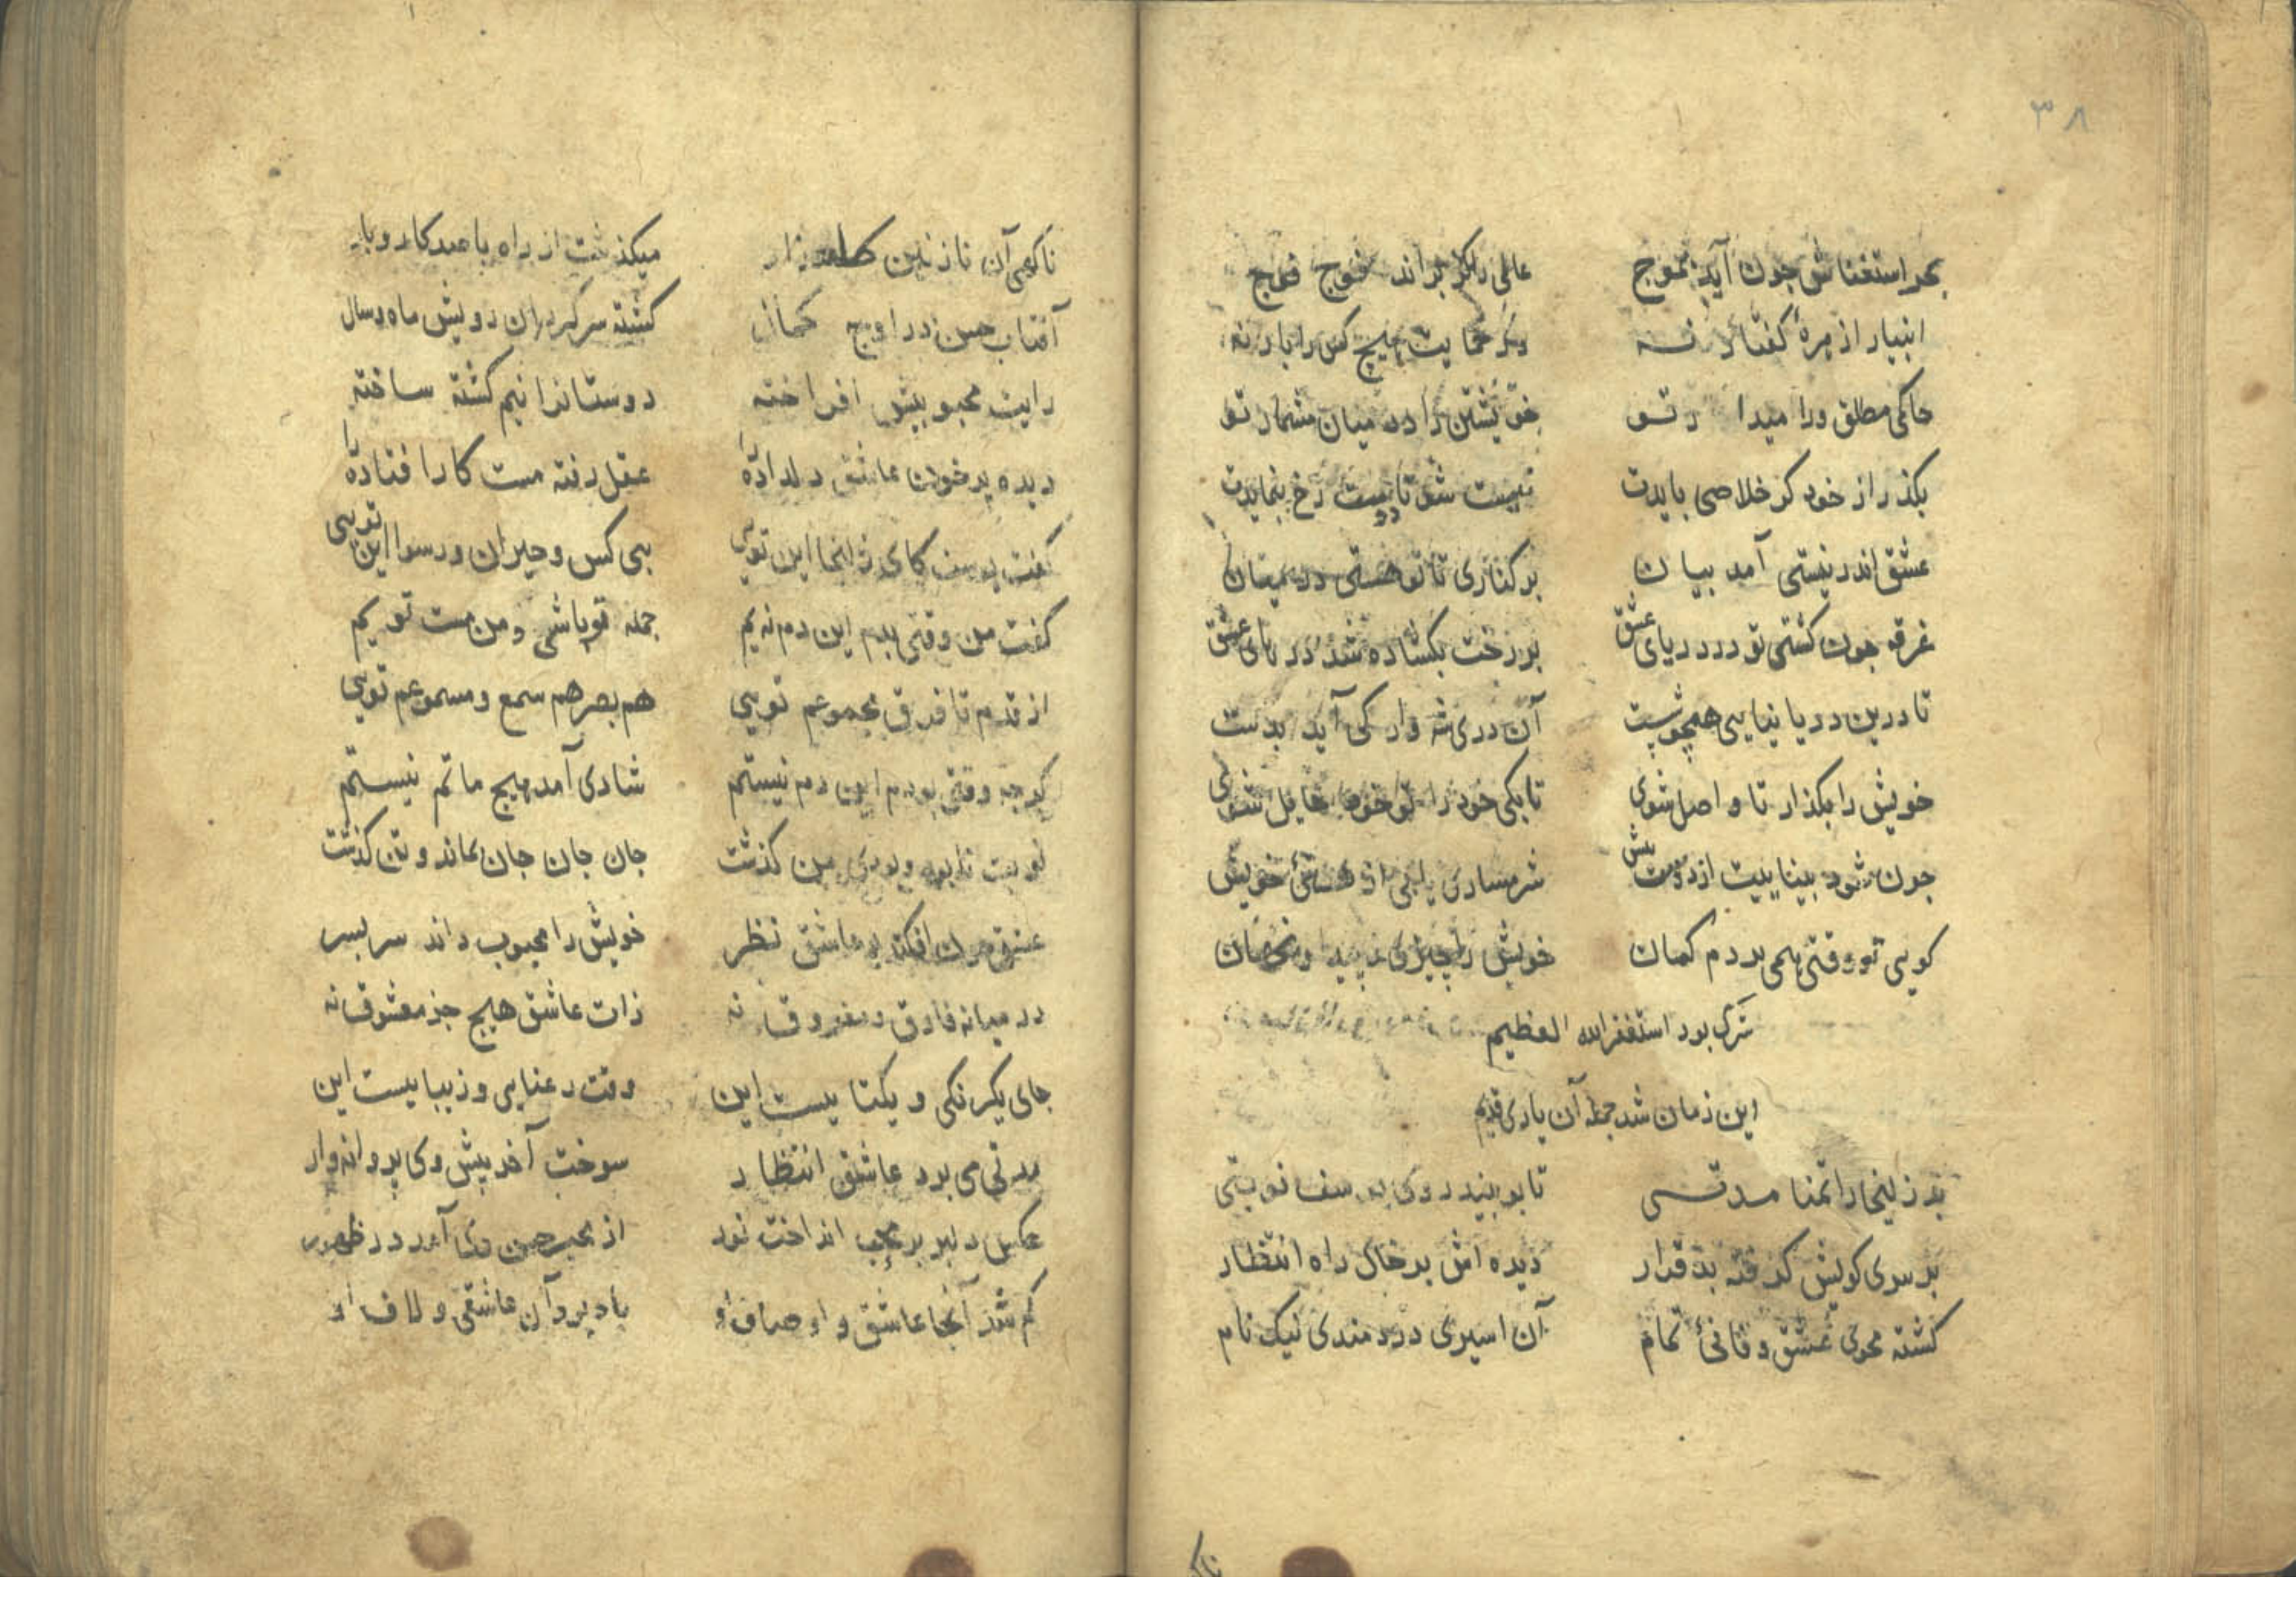 ٣٨
بحر استغناش جون آید بموج عالمی دیگر براند فوج فوج
انبیار از هرهٔ گفتار نه هیچ کس را بار نه
حاکم مطلق ورا میدا ر تو خویشتن را در میان مشمار تو
بکذر از خود کر خلاصی بایدت نیست شو تا دوست رخ بنمایدت
عشق اندر نیستی آمد بیان بر کناری تا تو هستی در میان
غرقه جون کشتی تو در دریای عشق بر رخت بکشاده شد درهای عشق
تا درین دریا نیایی همچو شست آن دری شه وار کی آید بدست
خویش را بکذار تا واصل شوی تا بکی خود را تو خود حایل شوی
جون شود بیناییت از دوست بیش شرمساری یابی از هستئ خویش
کویی تو وقتی همی بردم کمان خویش را چیزی
شرک بود استغفرالله العظیم
این زمان شد جمله آن یاری قدیم
بد زلیخا را تمنا مدتی تا ببیند روی یوسف نوبتی
بر سوی کویش کرفته بد قرار دیده اش بر خاک راه انتظار
کشته محوی عشق و فانئ تمام آن اسیری دردمندی نیک نام
ناکهی آن نازنین میکذشت از راه با صد کار و بار
آفتاب حسن در اوج کشته سرکردان رویش ماه و سال
رایت محبوبیش افراخته دوستانرا نیم کشته ساخته
دیده پر خون عاشق دلدادهٔ را عقل رفته مست کار افتادهٔ را
کفت یوسف کای زلیخا این تویی بی کس و حیران و رسوا این تویی
کفت من وقتی بدم این دم نه یم جمله تو باشی و من مست تو یم
از قدم تا فرق مجموعم تویی هم بصر هم سمع و مسموعم تویی
کرجه وقتی بودم این دم نیستم شادی آمد هیج ماتم نیستم
نوبت نابود و بودی من کذشت جان جان جان بماند و تن کذشت
عشق جون افکند بر عاشق نظر خویش را محبوب داند سر بسر
در میانه فارق و مفروق نه ذات عاشق هیج جز معشوق نه
جای یکرنکی و یکتاییست این وقت رعنایی و زیباییست این
مدتی می برد عاشق انتظار سوخت آخر پیش وی پروانه وار
عکس دلبر بر محب انداخت نور از حسن وی آمد در ظهور
کم شد آنجا عاشق و اوصاف او باد برد آن عاشقی و لاف او